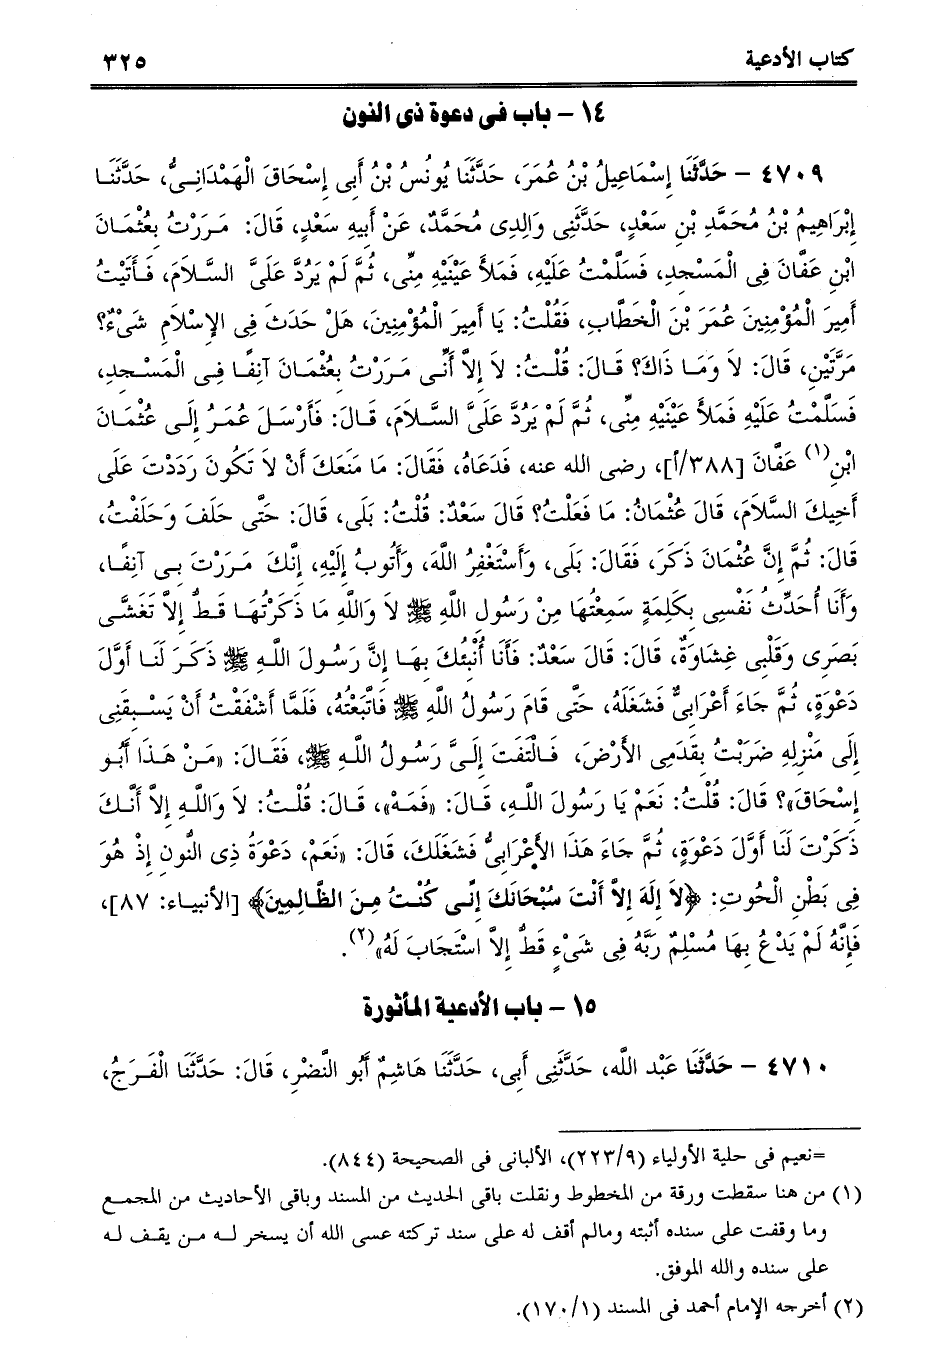 كتاب الأدعية ٣٢٥
١٤ – باب فى دعوة ذى النون
٤٧٠٩ – حَدَّثَنَا إِسْمَاعِيلُ بْنُ عُمَرَ، حَدَّثَنَا يُونُسُ بْنُ أَبِى إِسْحَاقَ الْهَمْدَانِىُّ، حَدَّثَنَا
إِبْرَاهِيمُ بْنُ مُحَمَّدِ بْنِ سَعْدٍ، حَدَّثَنِى وَالِدِى مُحَمَّدٌ، عَنْ أَبِيهِ سَعْدٍ، قَالَ: مَرَرْتُ بِعُثْمَانَ
ابْنِ عَفَّانَ فِى الْمَسْجِدِ، فَسَلَّمْتُ عَلَيْهِ، فَمَلأَ عَيْنَيْهِ مِنِّى، ثُمَّ لَمْ يَرُدَّ عَلَىَّ السَّلاَمَ، فَأَتَيْتُ
أَمِيرَ الْمُؤْمِنِينَ عُمَرَ بْنَ الْخَطَّابِ، فَقُلْتُ: يَا أَمِيرَ الْمُؤْمِنِينَ، هَلْ حَدَثَ فِى الإِسْلاَمِ شَىْءٌ؟
مَرَّتَيْنِ، قَالَ: لاَ وَمَا ذَاكَ؟ قَالَ: قُلْتُ: لاَ إِلاَّ أَنِّى مَرَرْتُ بِعُثْمَانَ آنِفًا فِى الْمَسْجِدِ،
فَسَلَّمْتُ عَلَيْهِ فَمَلأَ عَيْنَيْهِ مِنِّى، ثُمَّ لَمْ يَرُدَّ عَلَىَّ السَّلاَمَ، قَالَ: فَأَرْسَلَ عُمَرُ إِلَى عُثْمَانَ
ابْنِ(١) عَفَّانَ [٣٨٨/أ]، رضى الله عنه، فَدَعَاهُ، فَقَالَ: مَا مَنَعَكَ أَنْ لاَ تَكُونَ رَدَدْتَ عَلَى
أَخِيكَ السَّلاَمَ، قَالَ عُثْمَانُ: مَا فَعَلْتُ؟ قَالَ سَعْدٌ: قُلْتُ: بَلَى، قَالَ: حَتَّى حَلَفَ وَحَلَفْتُ،
قَالَ: ثُمَّ إِنَّ عُثْمَانَ ذَكَرَ، فَقَالَ: بَلَى، وَأَسْتَغْفِرُ اللَّهَ، وَأَتُوبُ إِلَيْهِ، إِنَّكَ مَرَرْتَ بِى آنِفًا،
وَأَنَا أُحَدِّثُ نَفْسِى بِكَلِمَةٍ سَمِعْتُهَا مِنْ رَسُولِ اللَّهِ ﷺ لاَ وَاللَّهِ مَا ذَكَرْتُهَا قَطُّ إِلاَّ تَغَشَّى
بَصَرِى وَقَلْبِى غِشَاوَةٌ، قَالَ: قَالَ سَعْدٌ: فَأَنَا أُنْبِئُكَ بِهَا إِنَّ رَسُولَ اللَّهِ ﷺ ذَكَرَ لَنَا أَوَّلَ
دَعْوَةٍ، ثُمَّ جَاءَ أَعْرَابِىٌّ فَشَغَلَهُ، حَتَّى قَامَ رَسُولُ اللَّهِ ﷺ فَاتَّبَعْتُهُ، فَلَمَّا أَشْفَقْتُ أَنْ يَسْبِقَنِى
إِلَى مَنْزِلِهِ ضَرَبْتُ بِقَدَمِى الأَرْضَ، فَالْتَفَتَ إِلَىَّ رَسُولُ اللَّهِ ﷺ، فَقَالَ: «مَنْ هَذَا أَبُو
إِسْحَاقَ»؟ قَالَ: قُلْتُ: نَعَمْ يَا رَسُولَ اللَّهِ، قَالَ: «فَمَهْ»، قَالَ: قُلْتُ: لاَ وَاللَّهِ إِلاَّ أَنَّكَ
ذَكَرْتَ لَنَا أَوَّلَ دَعْوَةٍ، ثُمَّ جَاءَ هَذَا الأَعْرَابِىُّ فَشَغَلَكَ، قَالَ: «نَعَمْ، دَعْوَةُ ذِى النُّونِ إِذْ هُوَ
فِى بَطْنِ الْحُوتِ: ﴿لاَ إِلَهَ إِلاَّ أَنْتَ سُبْحَانَكَ إِنِّى كُنْتُ مِنَ الظَّالِمِينَ﴾ [الأنبياء: ٨٧]،
فَإِنَّهُ لَمْ يَدْعُ بِهَا مُسْلِمٌ رَبَّهُ فِى شَىْءٍ قَطُّ إِلاَّ اسْتَجَابَ لَهُ»(٢).
١٥ – باب الأدعية المأثورة
٤٧١٠ – حَدَّثَنَا عَبْد اللَّه، حَدَّثَنِى أَبِى، حَدَّثَنَا هَاشِمٌ أَبُو النَّضْرِ، قَالَ: حَدَّثَنَا الْفَرَجُ،
=نعيم فى حلية الأولياء (٢٢٣/٩)، الألبانى فى الصحيحة (٨٤٤).
(١) من هنا سقطت ورقة من المخطوط ونقلت باقى الحديث من المسند وباقى الأحاديث من المجمع
وما وقفت على سنده أثبته ومالم أقف له على سند تركته عسى الله أن يسخر له من يقف له
على سنده والله الموفق.
(٢) أخرجه الإمام أحمد فى المسند (١٧٠/١).